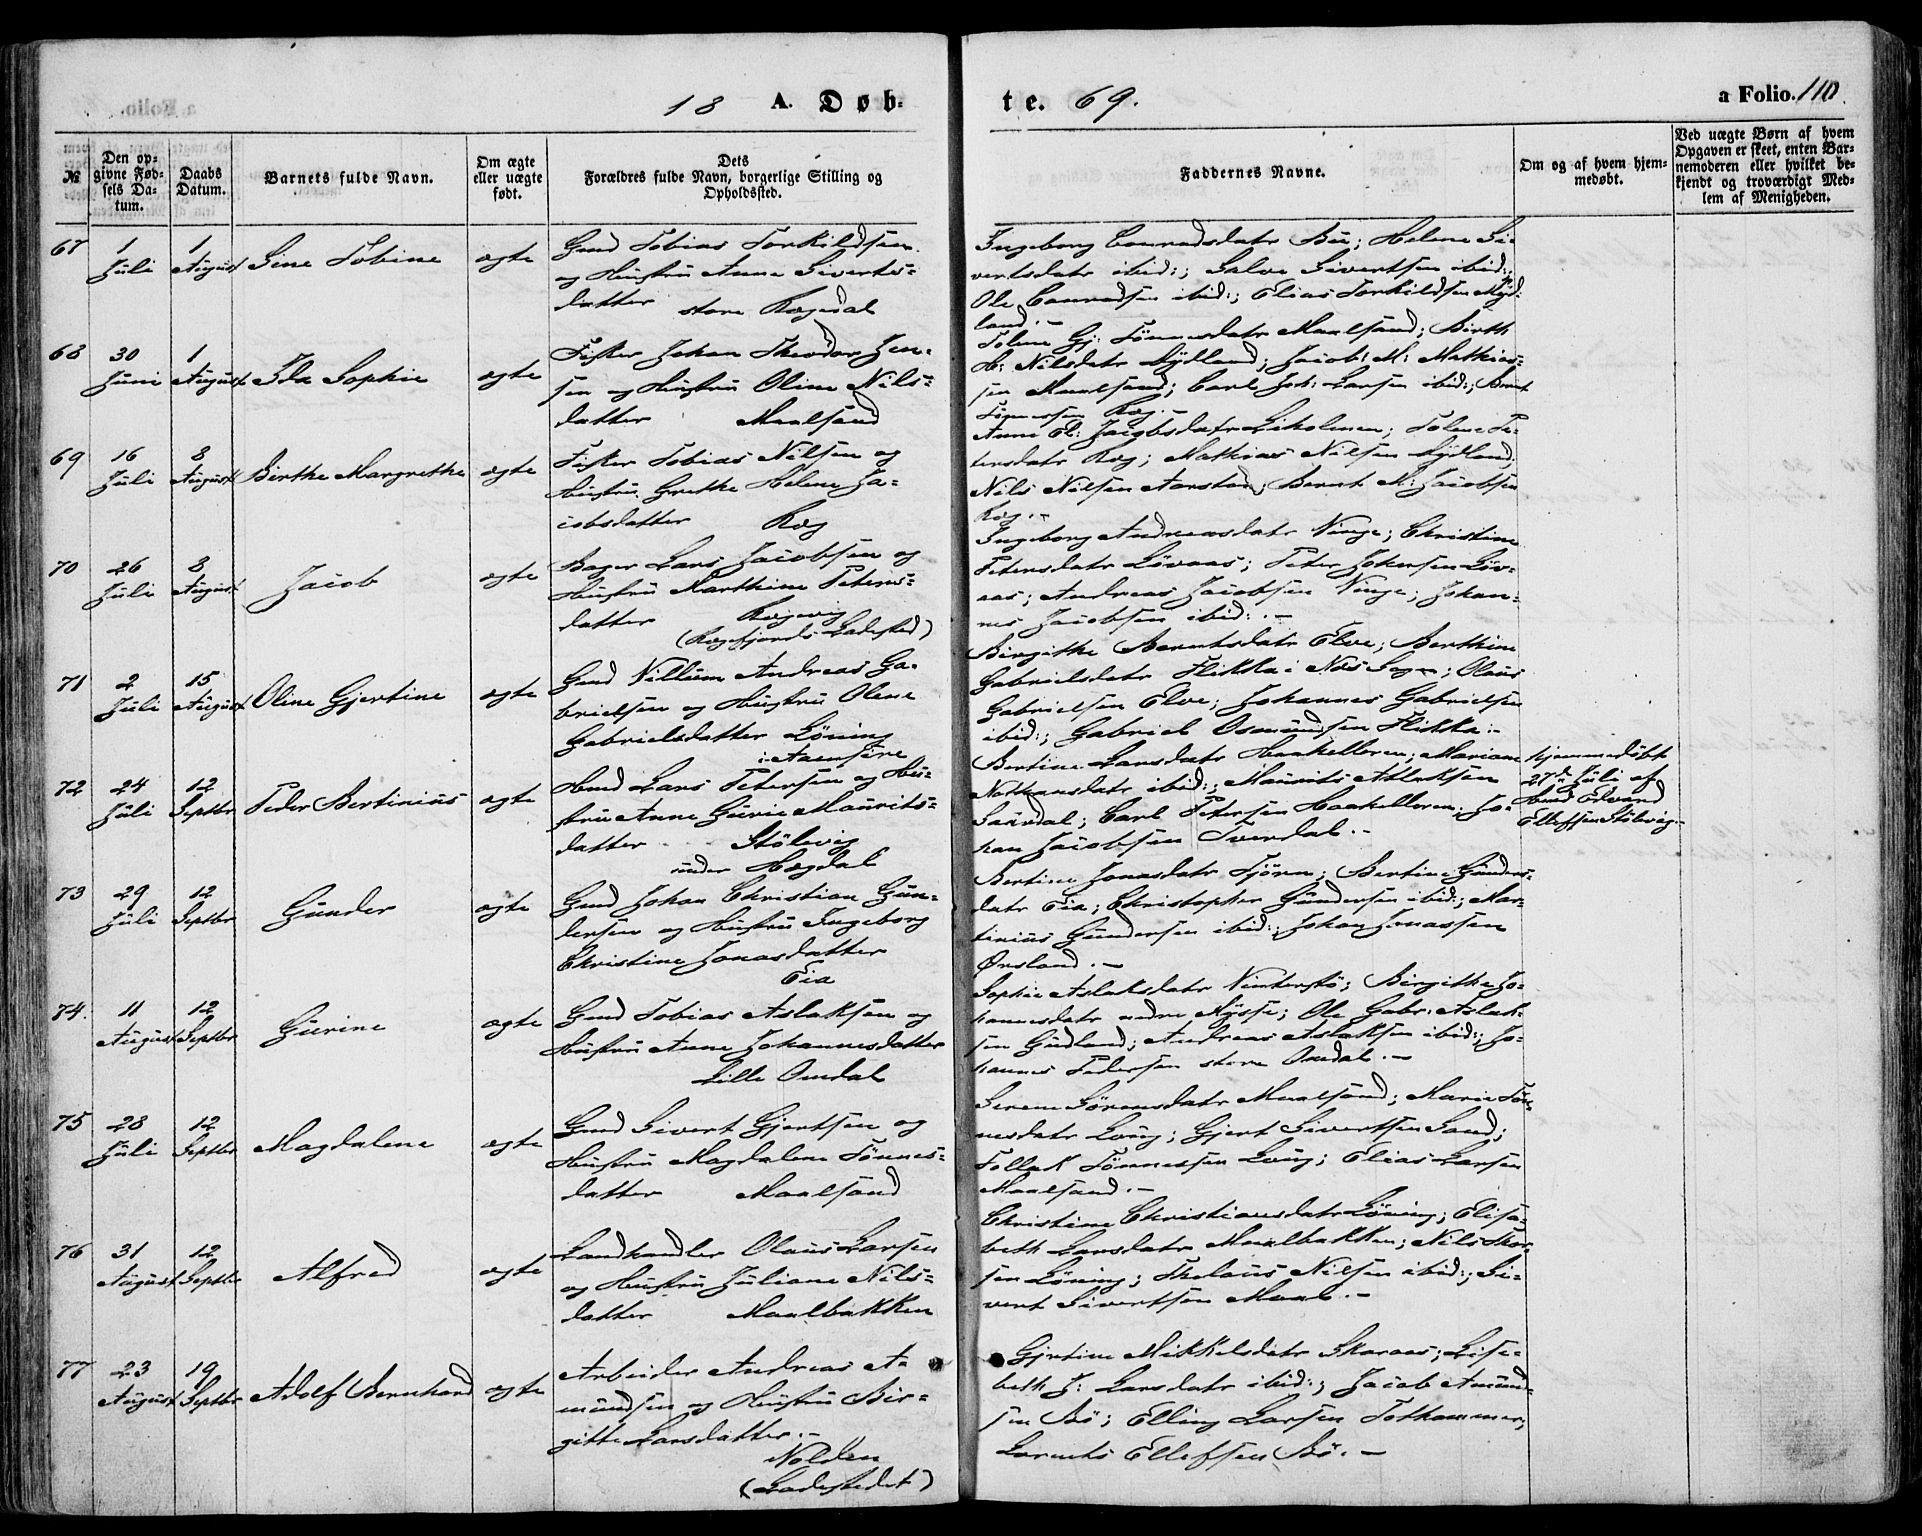 18 A. Døb-
te. 69.
a Folio. 110.
№
Den op-
givne Fød-
sels Da-
tum.
Daabs
Datum.
Barnets fulde Navn.
Om ægte
eller uægte
født.
Dets
Forældres fulde Navn, borgerlige Stilling og
Opholdssted.
Faddernes Navne.
Om og af hvem hjem-
medøbt.
Ved uægte Børn af hvem
Opgaven er skeet, enten Bar-
nemoderen eller hvilket be-
kjendt og troværdigt Med-
lem af Menigheden.
67 1 Juli 1 August Sine Tobine ægte
Gmd Tobias Torkildsen
og Hustru Anne Siverts-
datter store Rægedal
Ingeborg Conradsdatr Bøe; Helene Si-
vertsdatr ibid:; Salve Sivertsen ibid:;
Ole Conradsen ibid:; Elias Torkildsen Myd-
land.-
68 30 Juni 1 August Ida Sophie ægte
Fisker Johan Theodor Jen-
sen og Hustru Oline Nils-
datter Maalsand
Tolene Gj: Tönnesdatr Maalsand; Birth
H: Nilsdatr Lydland; Jacob M: Mathias-
sen Maalsand; Carl Joh: Larsen ibid:; Bernt
TönnessenRæg.-
69 16 Juli 8 August Birthe Margrethe ægte
Fisker Tobias Nilsen og
Hustru Grethe Helene Ja-
cobsdatter Ræg
Anne El: Jacobsdatr Liholmen; Tolene Pe-
tersdatr Ræg; Mathias Nilsen Lydland;
Nils Nilsen Aarstad; Bernt M: Jacobsen
Ræg.-
70 26 Juli 8 August Jacob ægte
Bager Lars Jacobsen og
Hustru Marthine Peters-
datter Rægevig
(Rægefjords Ladested)
Ingeborg Andreasdatr Vinge; Christine
Petersdatr Lövaas; Peter Johnsen Löv-
aas; Andreas Jacobsen Vinge; Johan-
nes Jacobsen ibid:.-
71 2 Juli 15 August Oline Gjertine ægte
Gmd Villum Andreas Ga-
brielsen og Hustru Olene
Gabrielsdatter Löning
i Aaensire
Birgithe Berentsdatr Elve; Berthine
Gabrielsdatr Flikka i Næs Sogn; Olaus
Gabrielsen Elve; Johannes Gabrielsen
ibid:; Gabriel Osmundsen Flikka.-
72 24 Juli 12 Septbr Peder Bertinius ægte
Hmd Lars Petersen og Hu-
stru Anne Gurie Maurits-
datter Stölevig
under Hægdal
Bertine Larsdatr Haakelleren; Mariane
Nathansdatr ibid:; Maurits Atlaksen
Saurdal; Carl Petersen Haakelleren; Jo-
han Jacobsen Tverdal.-
hjemmedöbt
27de Juli af
Hmd Edvard
Ellefsen Stölevig.-
73 29 Juli 12 Septbr Gunder ægte
Gmd Johan Christian Gun-
dersen og Hustru Ingeborg
Christine Jonasdatter
Eia
Bertine Jonasdatr Tjörn; Bertine Gunders-
datr Eia; Christopher Gundersen ibid:; Mar-
tinius Gundersen ibid:; Johan Jonassen
Örsland.-
74. 11 August 12 Septbr Gurine ægte
Gmd Tobias Aslaksen og
Hustru Anne Johannesdatter
Lille Omdal
Sophie Aslaksdatr Vinterstö; Birgithe Jo-
hannesdatr nedre Mysse; Ole Gabr. Aslak-
sen Gudland; Andreas Aslaksen ibid:; Jo-
hannes Pedersen store Omdal.-
75 28 Juli 12 Septbr Magdalene ægte
Gmd Sivert Gjertsen og
Hustru Magdalene Tönnes-
datter Maalsand
Serene Sörensdatr Maalsand; Marie Tön-
nesdatr Loug; Gjert Sivertsen Sand;
Tollak Tönnessen Loug; Elias Larsen
Maalsand.-
76 31 August 12 Septbr Alfred ægte
Landhandler Olaus Larsen
og Hustru Juliane Nils-
datter Maalbakken
Christine Christiansdatr Löning; Elisa-
beth Larsdatr Maalbakken; Nils Thor-
sen Löning; Thelaus Nilsen ibid:; Si-
vert Sivertsen Maal.-
77 23 August 19 Septbr Adolf Bernhard ægte
Arbeider Andreas A-
mundsen og Hustru Bir-
gitte Larsdatter.-
Nolden
(Ladestedet)
Gjertine Mikkelsdatr Skaraas; Lisa-
beth J: Larsdatr ibid:; Jacob Amund-
sen Bö; Elling Larsen Tothammer;
Lorents Ellefsen Bö.-